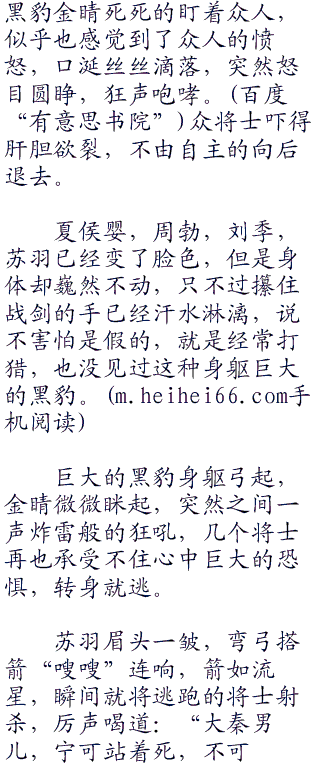 黑豹金睛死死的盯着众人，
似乎也感觉到了众人的愤
怒，口涎丝丝滴落，突然怒
目圆睁，狂声咆哮。(百度
“有意思书院”)众将士吓得
肝胆欲裂，不由自主的向后
退去。
夏侯婴，周勃，刘季，
苏羽已经变了脸色，但是身
体却巍然不动，只不过攥住
战剑的手已经汗水淋漓，说
不害怕是假的，就是经常打
猎，也没见过这种身躯巨大
的黑豹。(m.heihei66.com手
机阅读)
巨大的黑豹身躯弓起，
金睛微微眯起，突然之间一
声炸雷般的狂吼，几个将士
再也承受不住心中巨大的恐
惧，转身就逃。
苏羽眉头一皱，弯弓搭
箭“嗖嗖”连响，箭如流
星，瞬间就将逃跑的将士射
杀，厉声喝道：“大秦男
儿，宁可站着死，不可